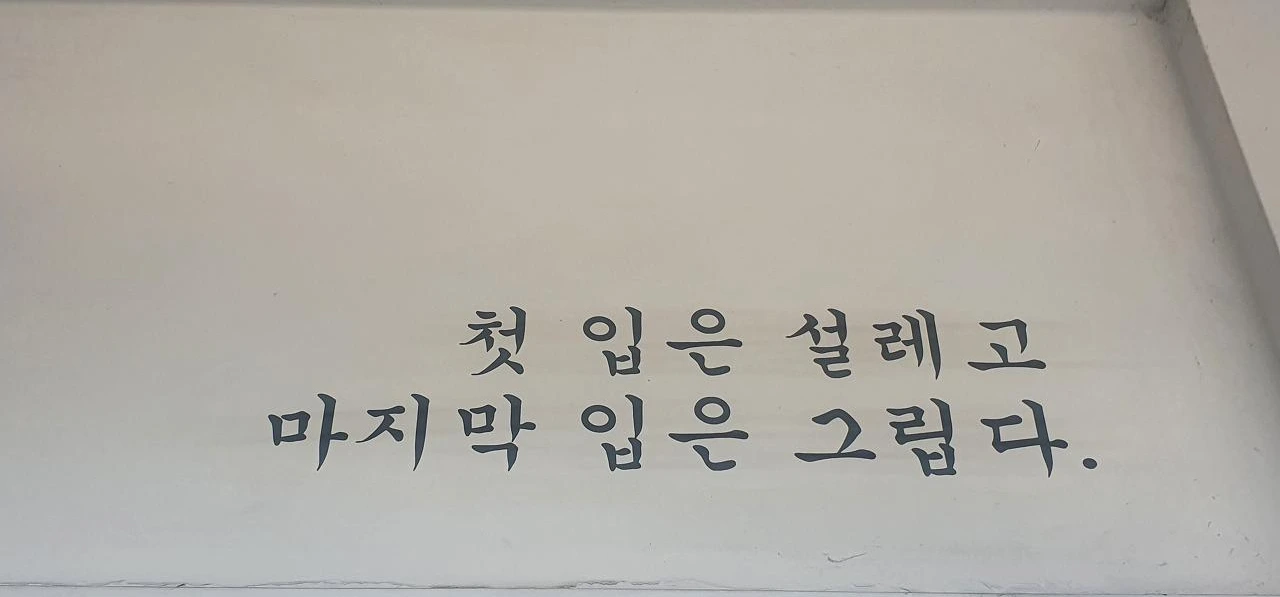 첫 입은 설레고
마지막 입은 그립다.